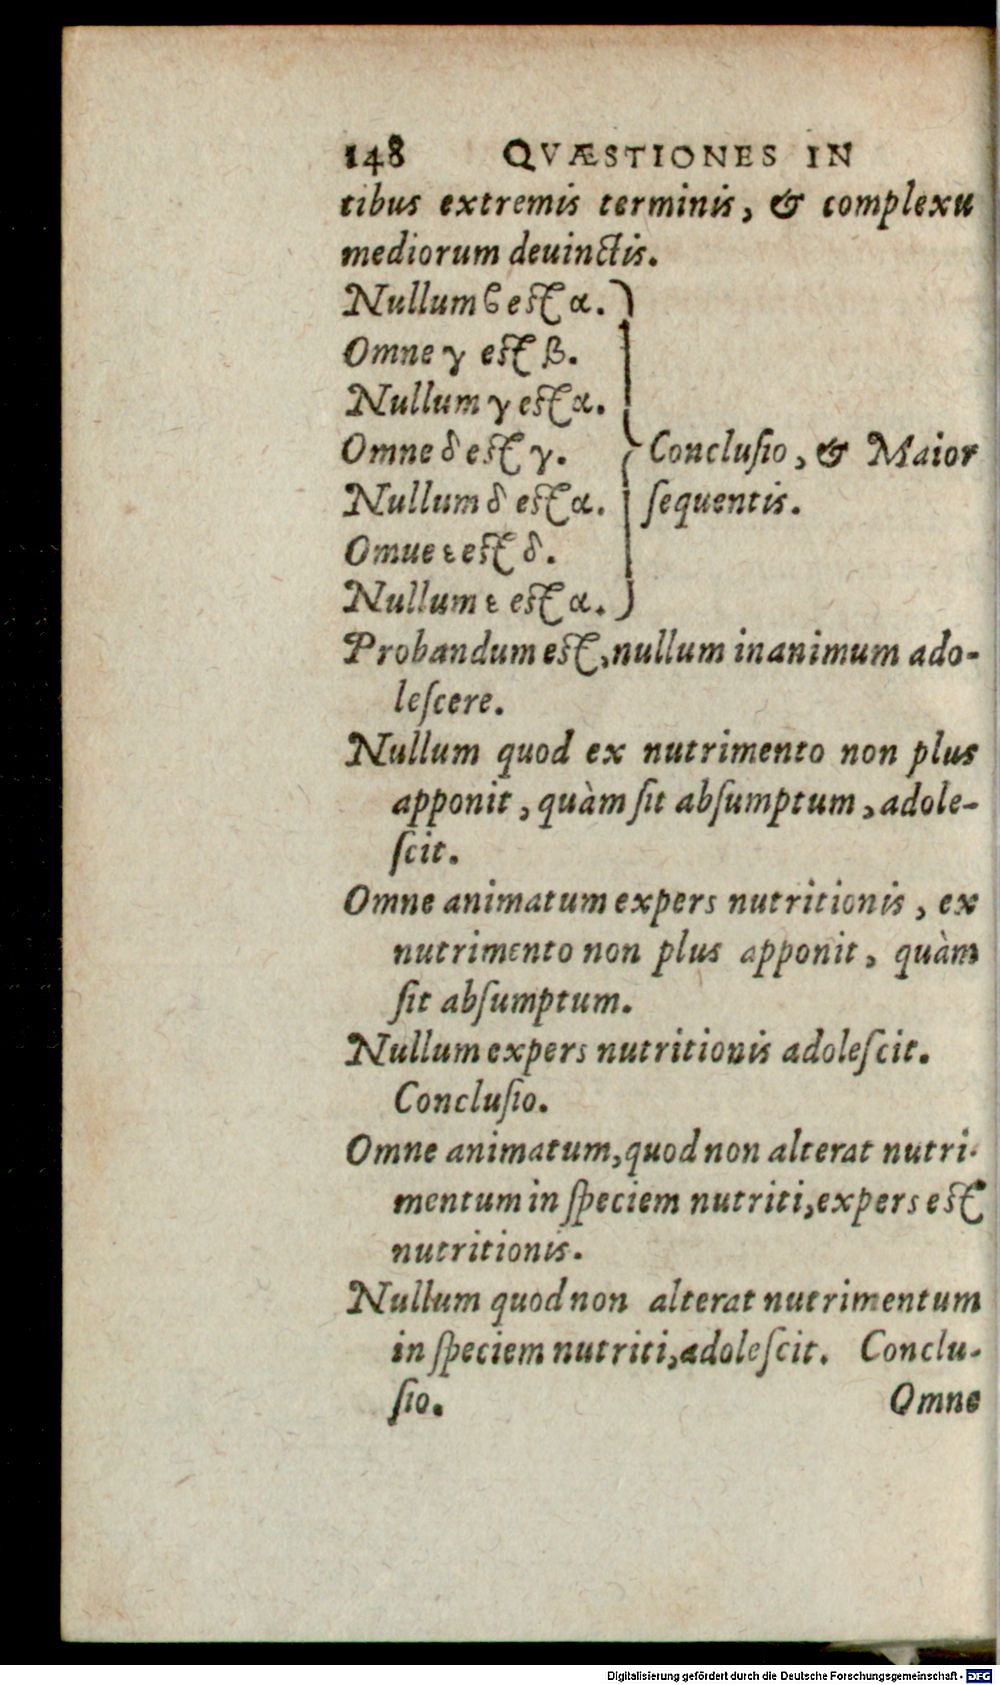 148 QVÆSTIONES IN
tibus extremis terminis, & complexu
mediorum deuinctis.
Nullum ϐ est α.
Omne γ est β.
Nullum γ est α.
Omne δ est γ. Conclusio, & Maior
Nullum δ est α. sequentis.
Omue ε est δ.
Nullum ε est α.
Probandum est, nullum inanimum ado-
lescere.
Nullum quod ex nutrimento non plus
apponit, quàm sit absumptum, adole-
scit.
Omne animatum expers nutritionis, ex
nutrimento non plus apponit, quàm
sit absumptum.
Nullum expers nutritionis adolescit.
Conclusio.
Omne animatum, quod non alterat nutri-
mentum in speciem nutriti, expers est
nutritionis.
Nullum quod non alterat nutrimentum
in speciem nutriti, adolescit. Conclu-
sio. Omne
Digitalisierung gefördert durch die Deutsche Forschungsgemeinschaft - DFG